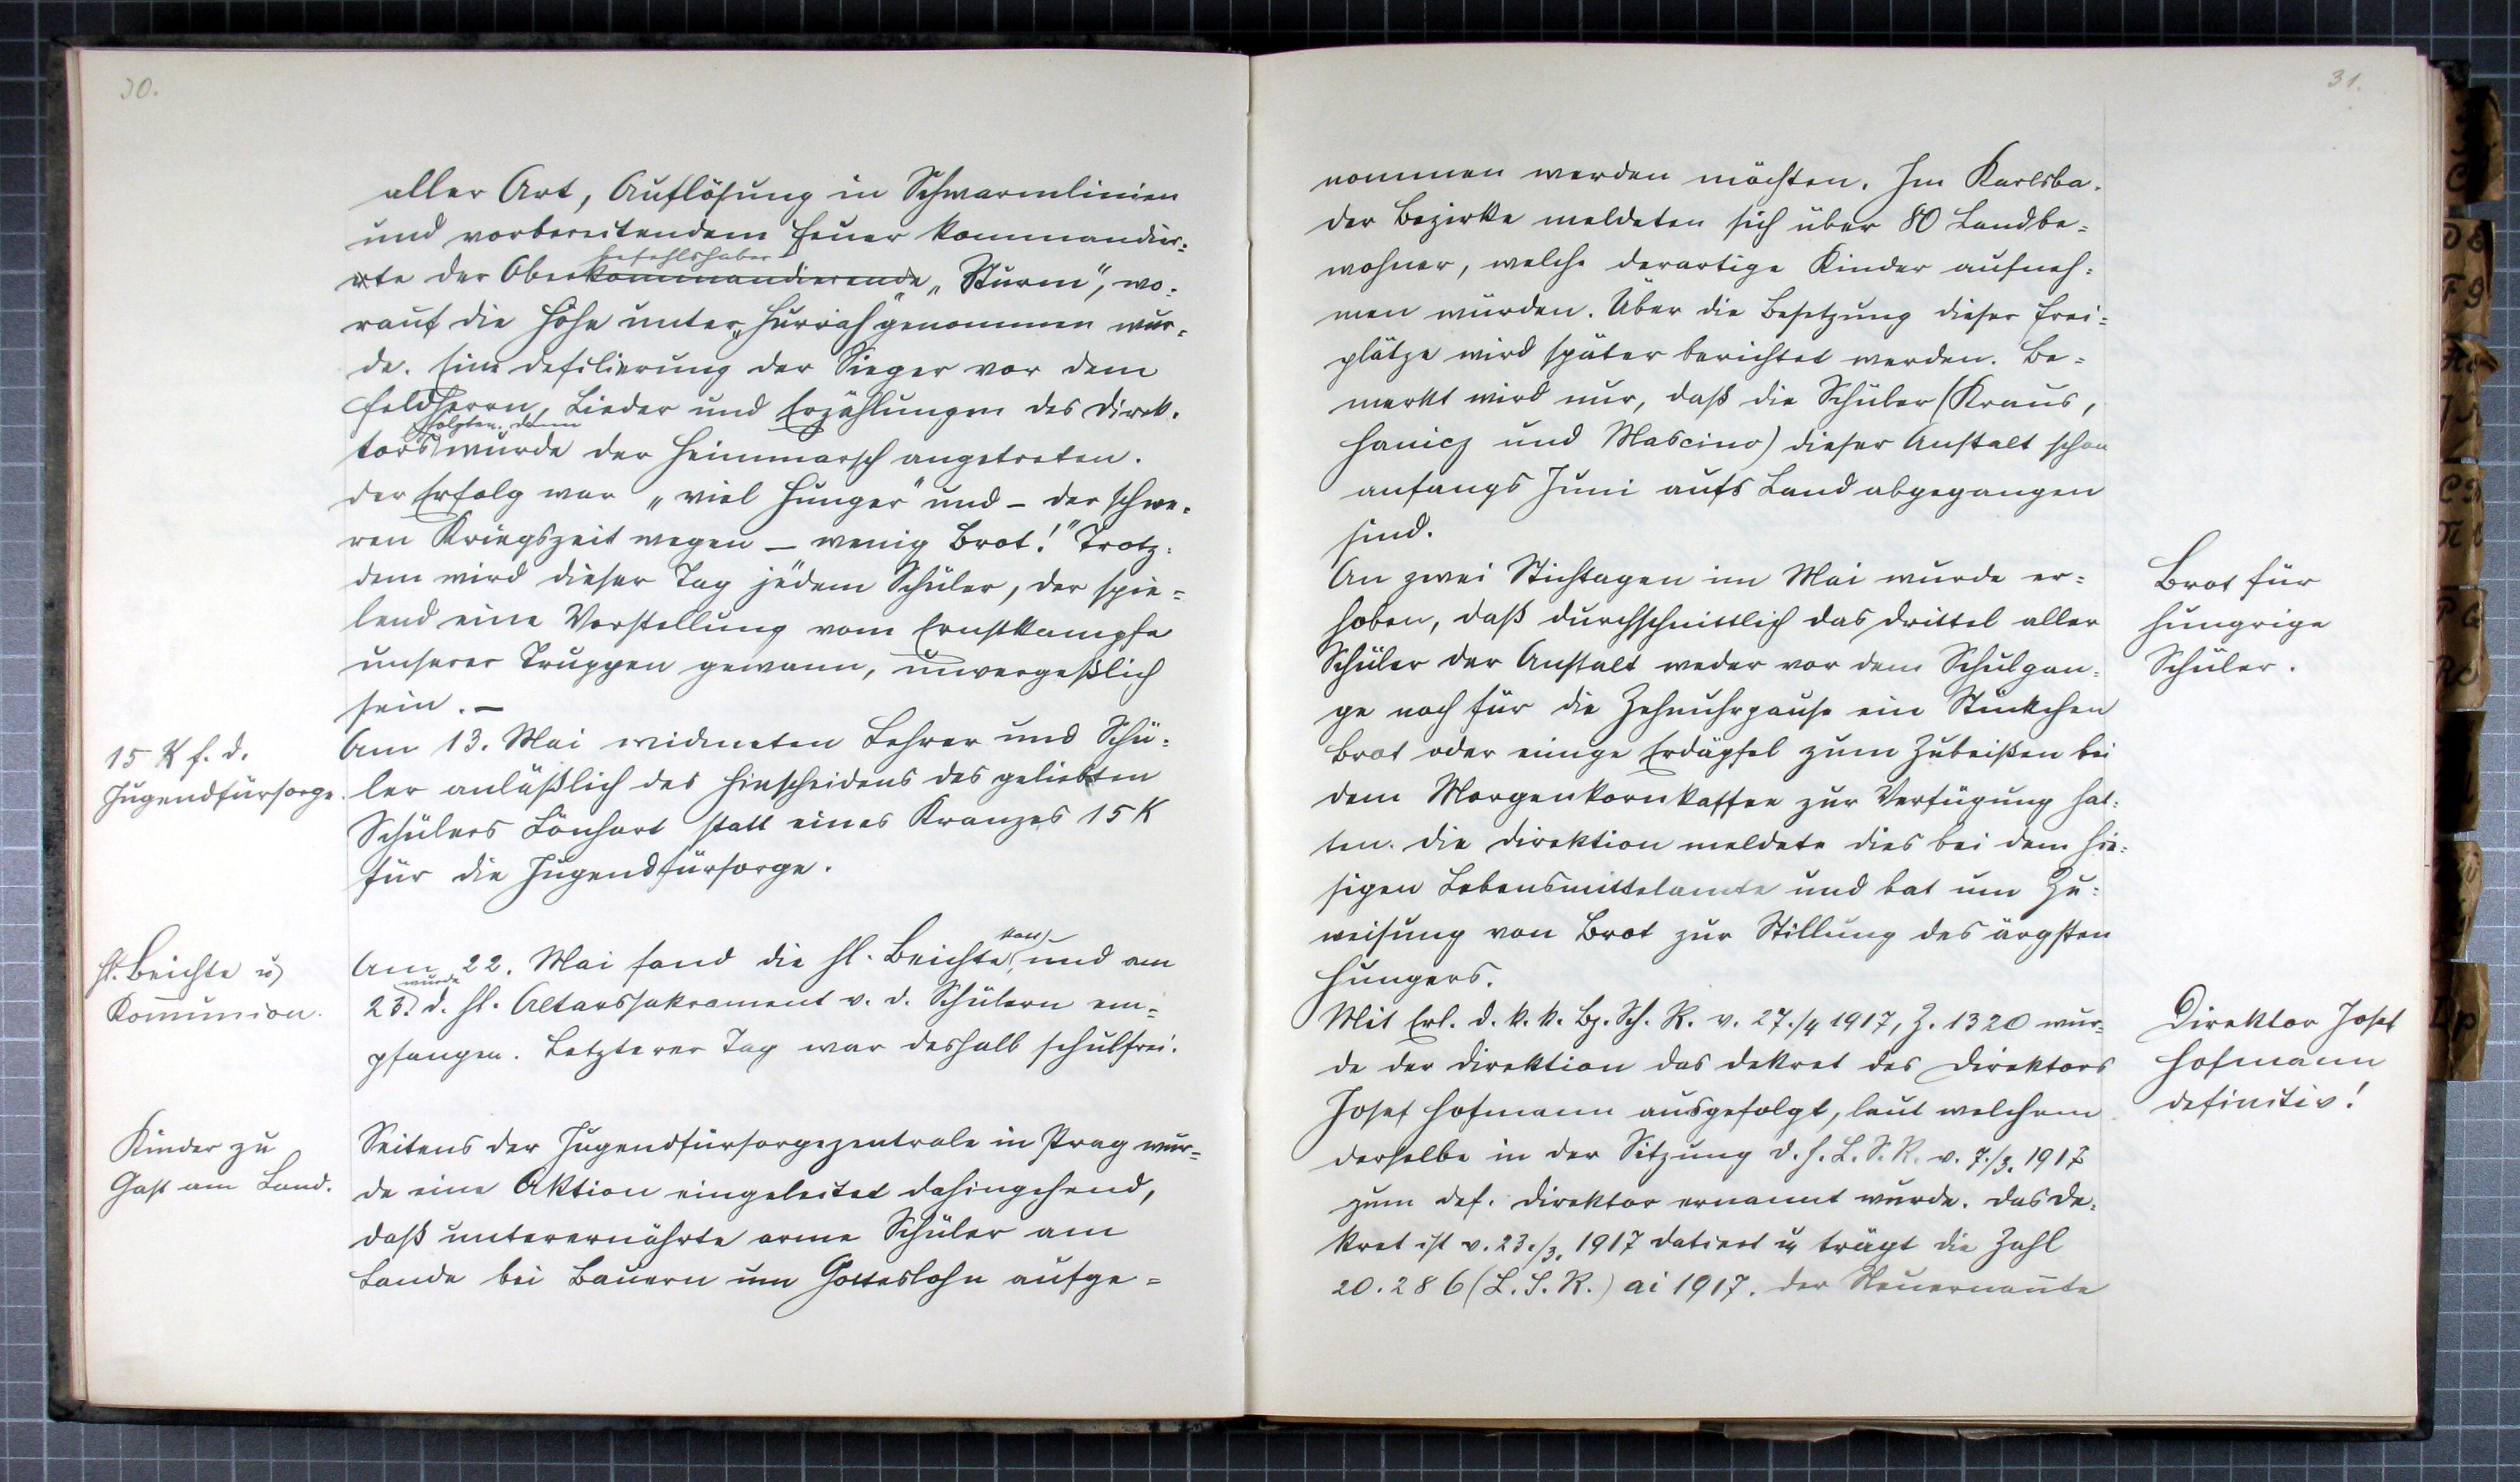 30.
aller Art, Auflösung in Schwarmlinien
und vorbereitendem Feuer kommandier-
befehlshaber
rte der Oberkommandierende „Sturm“, wo-
rauf die Höhe unter „Hurrah“ genommen wur-
de. Eine Defilierung der Sieger vor dem
Feldherrn, Lieder und Erzählungen des Direk-
folgten. dann
tors wurde der Heimmarsch angetreten.
Der Erfolg war „viel Hunger“ und – der schwe-
ren Kriegszeit wegen – wenig Brot!“ Trotz-
dem wird dieser Tag jedem Schüler, der spie-
lend eine Vorstellung vom Ernstkampfe
unserer Truppen gewann, unvergeßlich
sein. –
15 K f. d.
Jugendfürsorge.
Am 13. Mai widmeten Lehrer und Schü-
ler anläßlich des Hinscheidens des geliebten
Schülers Lönhart statt eines Kranzes 15 K
für die Jugendfürsorge.
hl. Beichte u
Kommunion.
statt
Am 22. Mai fand die hl. Beichte, und am
wurde
23. d. hl. Altarssakrament v. d. Schülern em-
pfangen. Letzterer Tag war deshalb schulfrei.
Kinder zu
Gast am Land.
Seitens der Jugendfürsorgezentrale in Prag wur-
de eine Aktion eingeleitet dahingehend,
daß unterernährte arme Schüler am
Lande bei Bauern um Gotteslohn aufge-
31.
nommen werden möchten. Im Karlsba-
der Bezirke meldeten sich über 80 Landbe-
wohner, welche derartige Kinder aufneh-
men würden. Über die Besetzung dieser Frei-
plätze wird später berichtet werden. Be-
merkt wird nur, daß die Schüler (Kraus,
Hanicz und Mascino) dieser Anstalt schon
anfangs Juni aufs Land abgegangen
sind.
Brot für
hungrige
Schüler.
An zwei Stichtagen im Mai wurde er-
hoben, daß durchschnittlich das Drittel aller
Schüler der Anstalt weder vor dem Schulgan-
ge noch für die Zehnuhrpause ein Stückchen
Brot oder einige Erdäpfel zum Zubeißen bei
dem Morgenkornkaffee zur Verfügung hat-
ten. Die Direktion meldete dies bei dem hie-
sigen Lebensmittelamte und bat um Zu-
weisung von Brot zur Stillung des ärgsten
Hungers.
Direktor Josef
Hofmann
definitiv!
Mit Erl. d. k. k. Bz. Sch. R. v. 27./4 1917, Z. 1320 wur-
de der Direktion das Dekret des Direktors
Josef Hofmann ausgefolgt, laut welchem
derselbe in der Sitzung d. h. L. S. R. v. 7./3. 1917
zum def. Direktor ernannt wurde. Das De-
kret ist v. 23./3. 1917 datiert u trägt die Zahl
20.286 (L. S. R.) ai 1917. Der Neuernannte